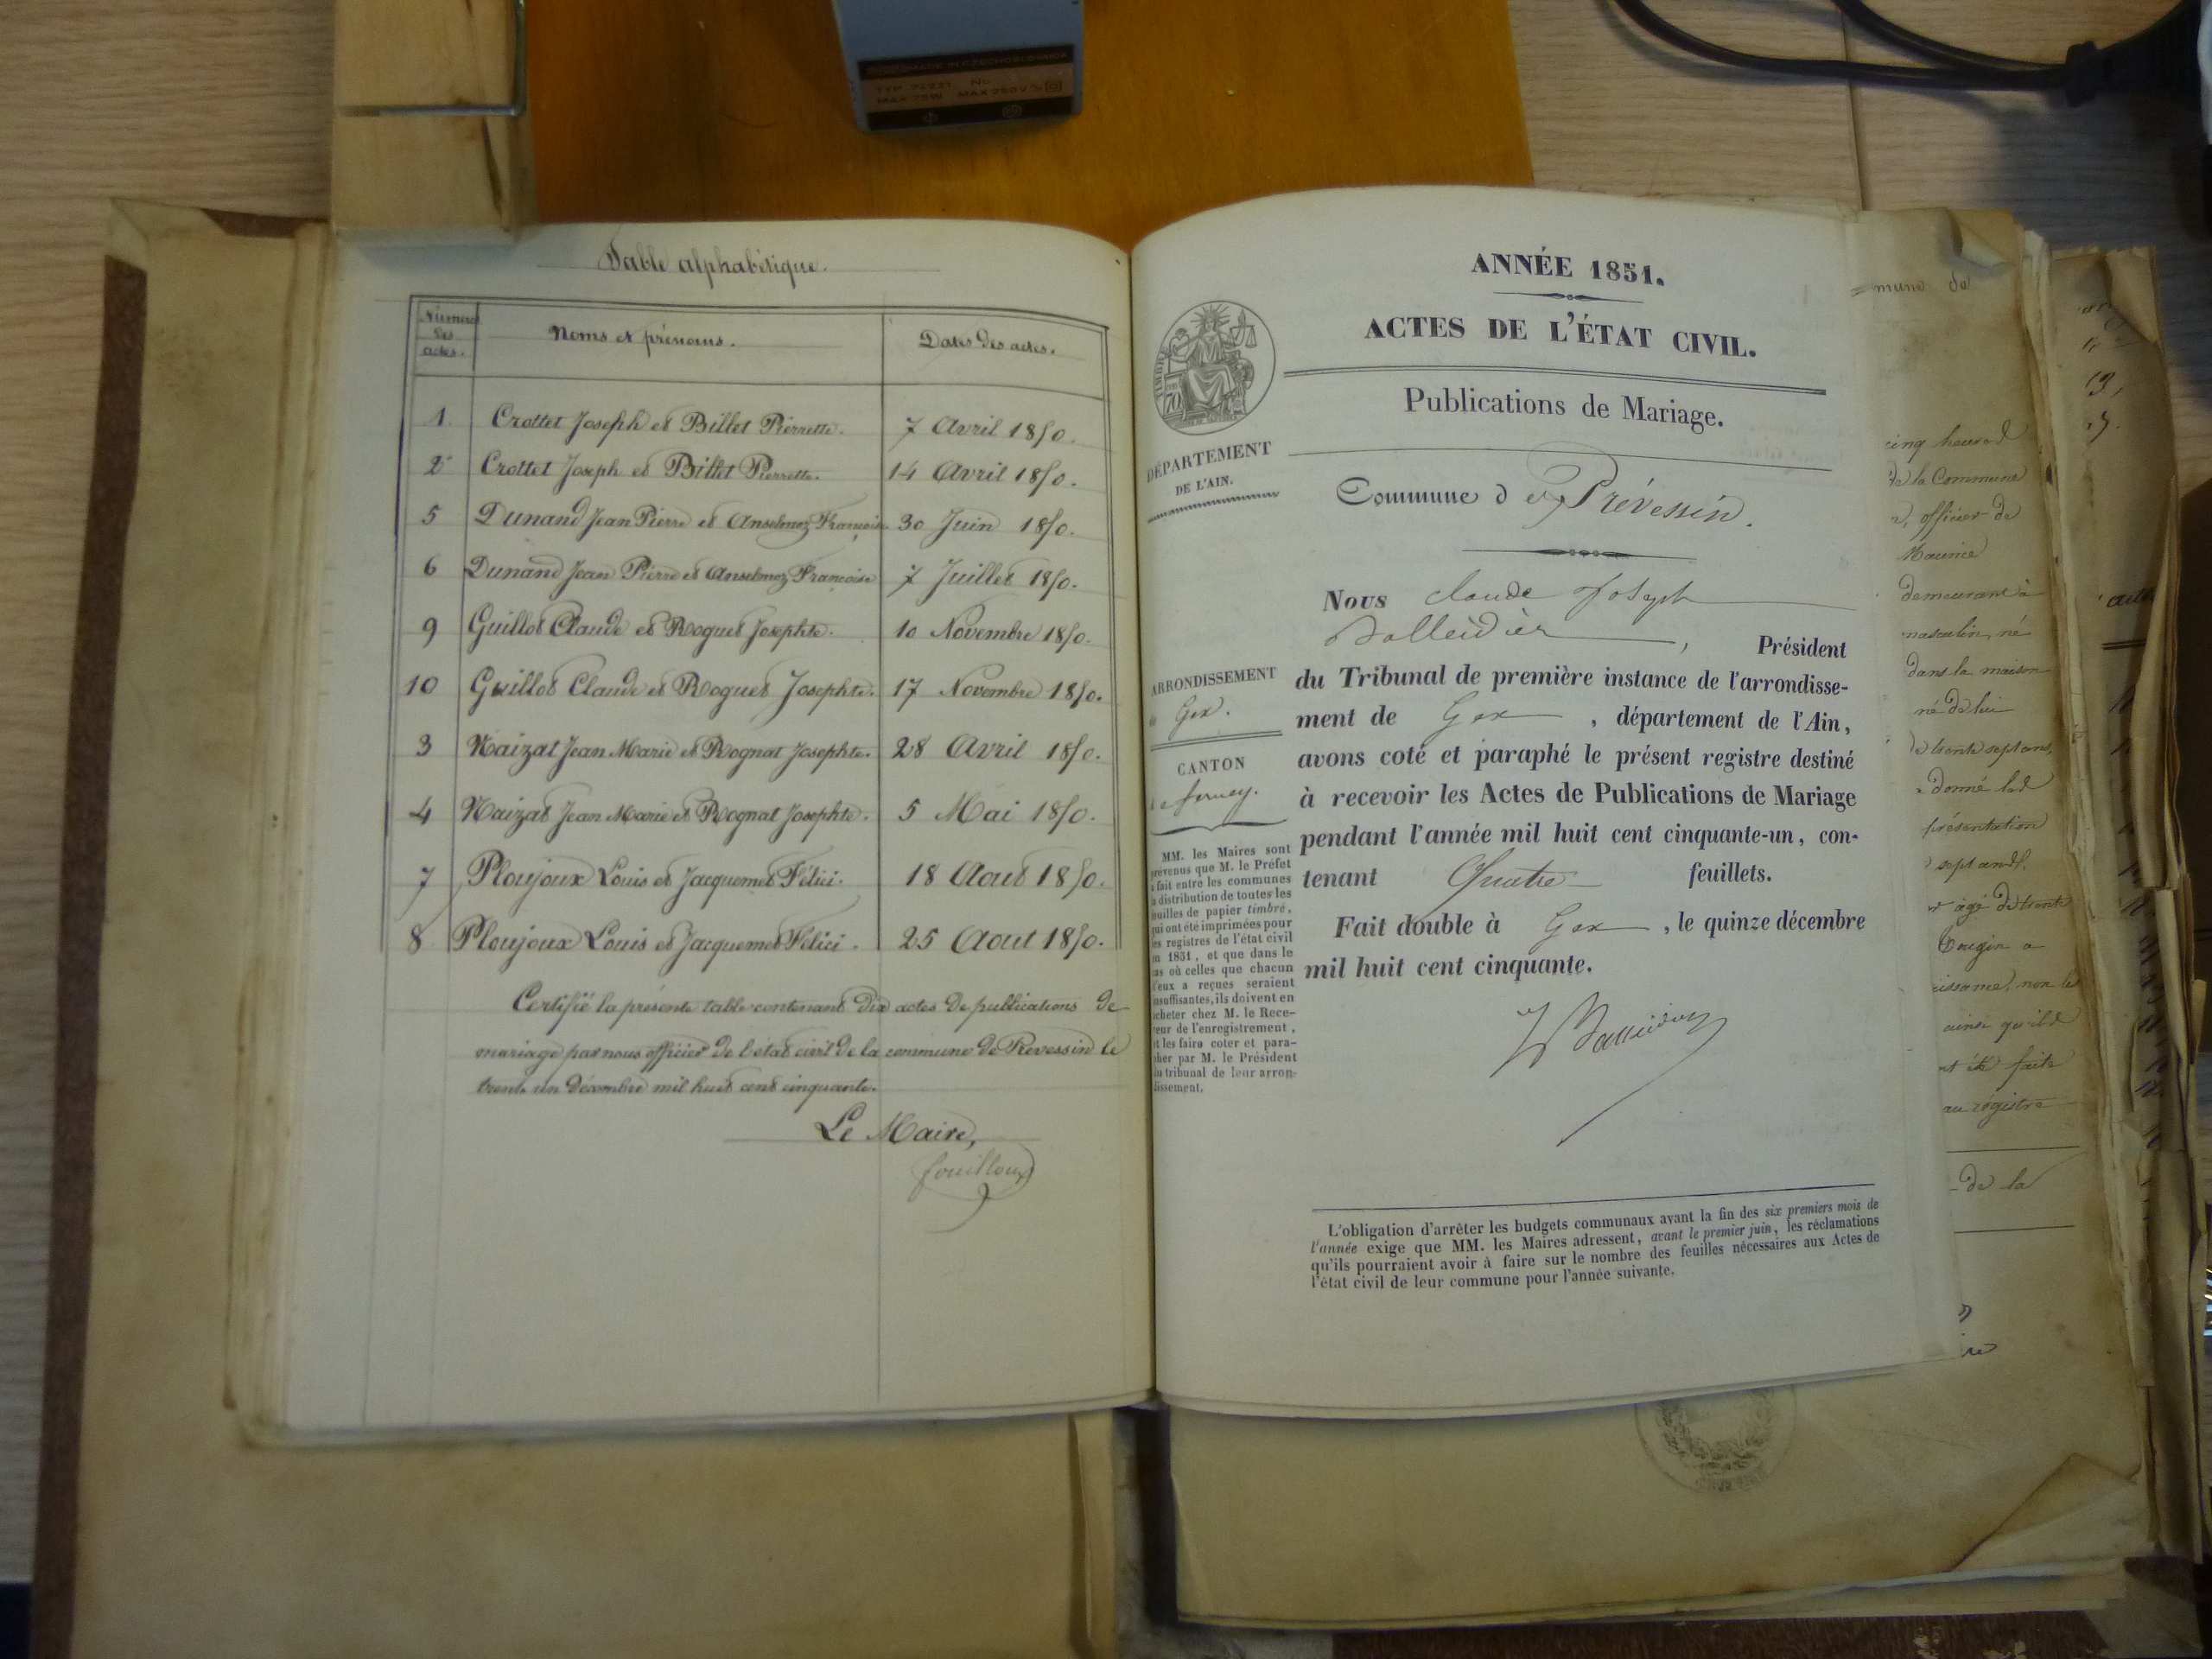 TYP
MAX 75W MAX 250V
Table alphabétique.
Numéros des actes. Noms et prénoms. Dates des actes.
1. Crottet Joseph et Billet Pierrette. 7 Avril 1850.
2 Crottet Joseph et Billet Pierrette. 14 Avril 1850.
5 Dunand Jean Pierre et Anselmoz Françoise 30 Juin 1850.
6 Dunand Jean Pierre et Anselmoz Françoise 7 Juillet 1850.
9 Guillot Claude et Roguet Josephte. 10 Novembre 1850.
10 Guillot Claude et Roguet Josephte. 17 Novembre 1850.
3 Naizat Jean Marie et Rognat Josephte. 28 Avril 1850.
4 Naizat Jean Marie et Rognat Josephte. 5 Mai 1850.
7 Ploujoux Louis et Jacquemet Félici. 18 Aout 1850.
8 Ploujoux Louis et Jacquemet Félici. 25 Aout 1850.
Certifié la présente table contenant dix actes de publications de
mariage par nous officier de l'état civil de la commune de Prevessin le
trente un décembre mil huit cent cinquante.
Le Maire,
fouilloux
ANNÉE 1851.
ACTES DE L'ÉTAT CIVIL.
Publications de Mariage.
TIMBRE
70
DÉPARTEMENT
DE L'AIN.
Commune de Prévessin.
Nous Claude Joseph
Balleidier, Président
du Tribunal de première instance de l'arrondisse-
ment de Gex, département de l'Ain,
avons coté et paraphé le présent registre destiné
à recevoir les Actes de Publications de Mariage
pendant l'année mil huit cent cinquante-un, con-
tenant Quatre feuillets.
Fait double à Gex, le quinze décembre
mil huit cent cinquante.
Balleidier
ARRONDISSEMENT
Gex.
CANTON
de ferney.
MM. les Maires sont
prévenus que M. le Préfet
a fait entre les communes
la distribution de toutes les
feuilles de papier timbré,
qui ont été imprimées pour
les registres de l'état civil
en 1851, et que dans le
cas où celles que chacun
d'eux a reçues seraient
insuffisantes, ils doivent en
acheter chez M. le Rece-
veur de l'enregistrement,
et les faire coter et para-
pher par M. le Président
du tribunal de leur arron-
dissement.
L'obligation d'arrêter les budgets communaux avant la fin des six premiers mois de
l'année exige que MM. les Maires adressent, avant le premier juin, les réclamations
qu'ils pourraient avoir à faire sur le nombre des feuilles nécessaires aux Actes de
l'état civil de leur commune pour l'année suivante.
cinq heures
de la Commune
officier de
Maurice
demeurant à
masculin, né
dans la maison
né de lui
de trente sept ans,
donné le
présentation
sept ans
agé de trente
non les
ainsi qu'il
été faite
au registre
de la